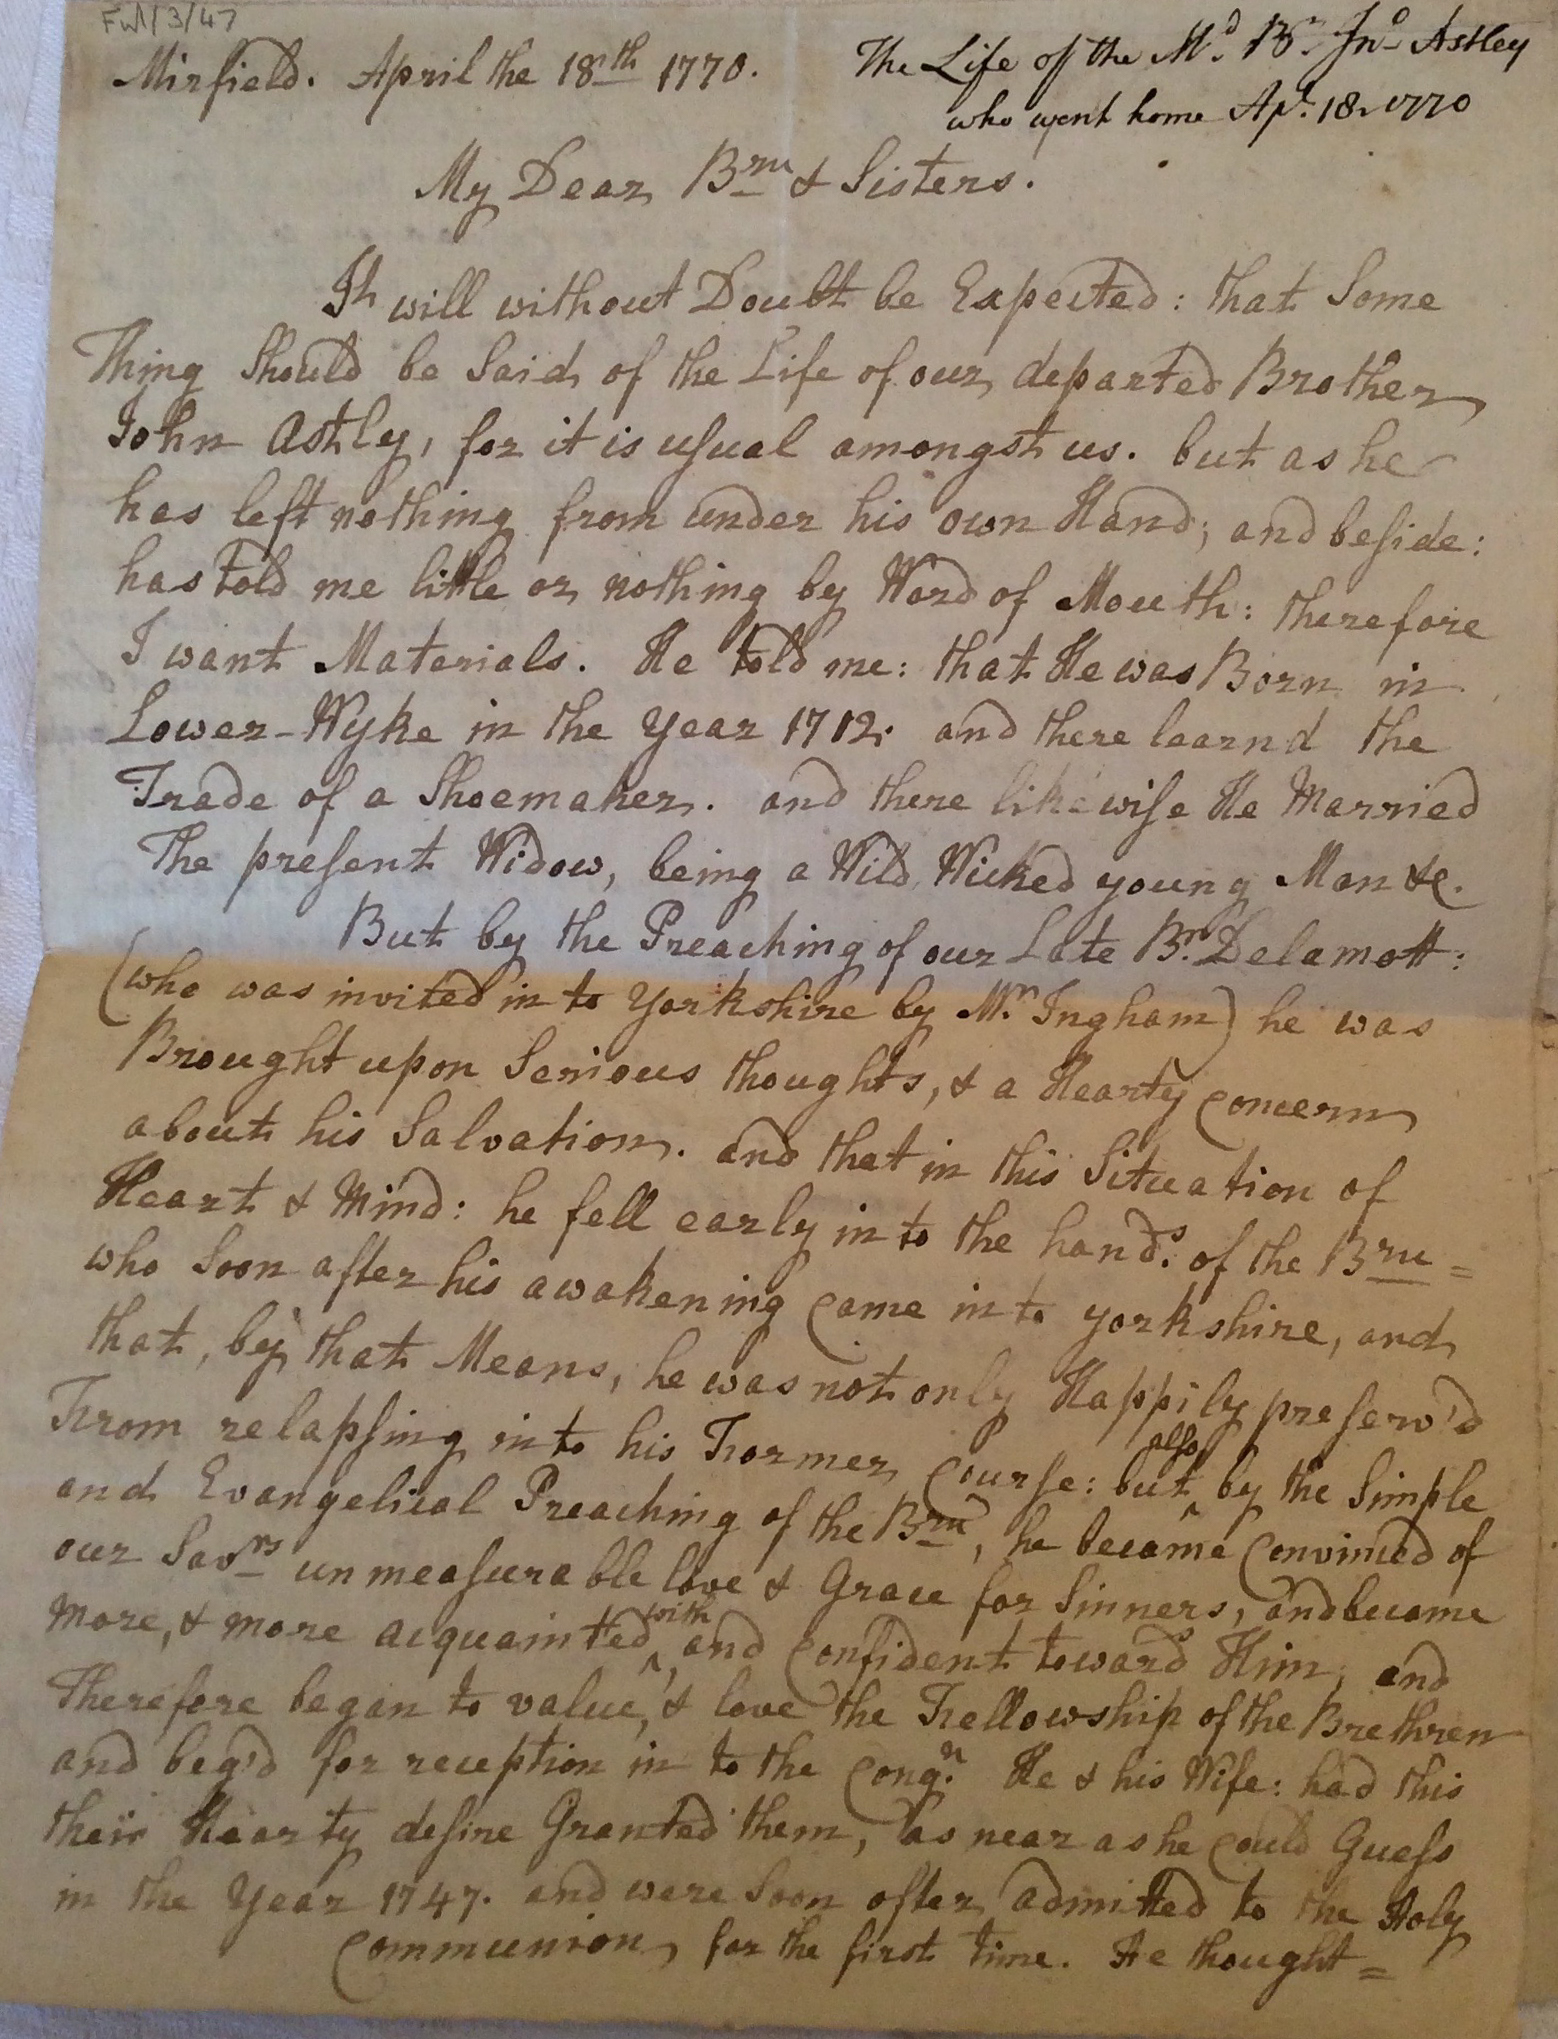 Ful/3/47
Mirfield. April the 18th 1770.
The Life of the Md. Br. Jno Astley
who went home Apl. 18. 1770
My Dear Brn & Sisters.
It will without Doubt be Expected: that Some
Thing Should be Said of the Life of our departed Brother
John Astley, for it is usual amongst us. but as he
has left nothing from under his own Hand; and beside:
has told me little or nothing by Word of Mouth: therefore
I want Materials. He told me: that He was Born in
Lower-Wyke in the Year 1712. and there learnd the
Trade of a Shoemaker. and there likewise He Married
The present Widow, being a Wild, Wicked young Man &c.
But by the Preaching of our Late Br. Delamott:
(who was invited in to Yorkshire by Mr. Ingham) he was
Brought upon Serious thoughts, & a Hearty Concern
about his Salvation. and that in this Situation of
Heart & Mind: he fell early in to the hands. of the Brn =
who Soon after his awakening Came in to yorkshire, and
that, by that Means, he was not only Happily preserv'd
From relapsing into his Former Course: but also by the Simple
and Evangelical Preaching of the Brn, he became Convinced of
our Savrs unmeasurable love & Grace for Sinners, and became
more, & more acquainted with, and Confident toward Him, and
Therefore began to value, & love the Fellowship of the Brethren
and beg'd for reception in to the Congn. He & his Wife: had this
their Hearty desire Granted them, as near as he Could Guess
in the Year 1747. and were Soon after admitted to the Holy
Communion, for the first time. He thought =